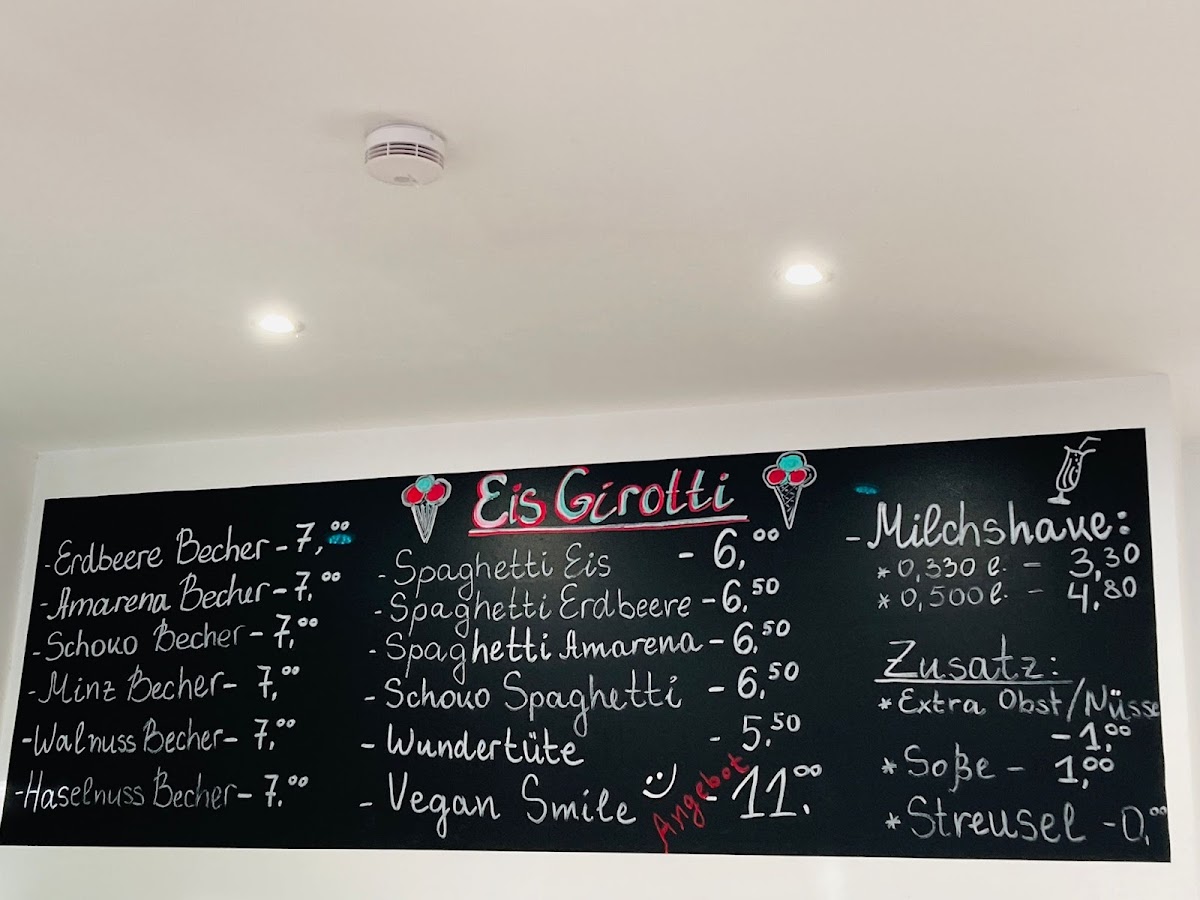 Eis Girotti
-Erdbeere Becher - 7,00
-Amarena Becher - 7,00
-Schoko Becher - 7,00
-Minz Becher - 7,00
-Walnuss Becher - 7,00
-Haselnuss Becher - 7,00
- Spaghetti Eis - 6,00
- Spaghetti Erdbeere - 6,50
- Spaghetti Amarena - 6,50
- Schoko Spaghetti - 6,50
- Wundertüte - 5,50
- Vegan Smile - 11.00
Angebot
- Milchshake:
* 0,330 l. - 3,30
* 0,500 l. - 4,80
Zusatz:
* Extra Obst/Nüsse
- 1,00
* Soße - 1,00
* Streusel - 0,00